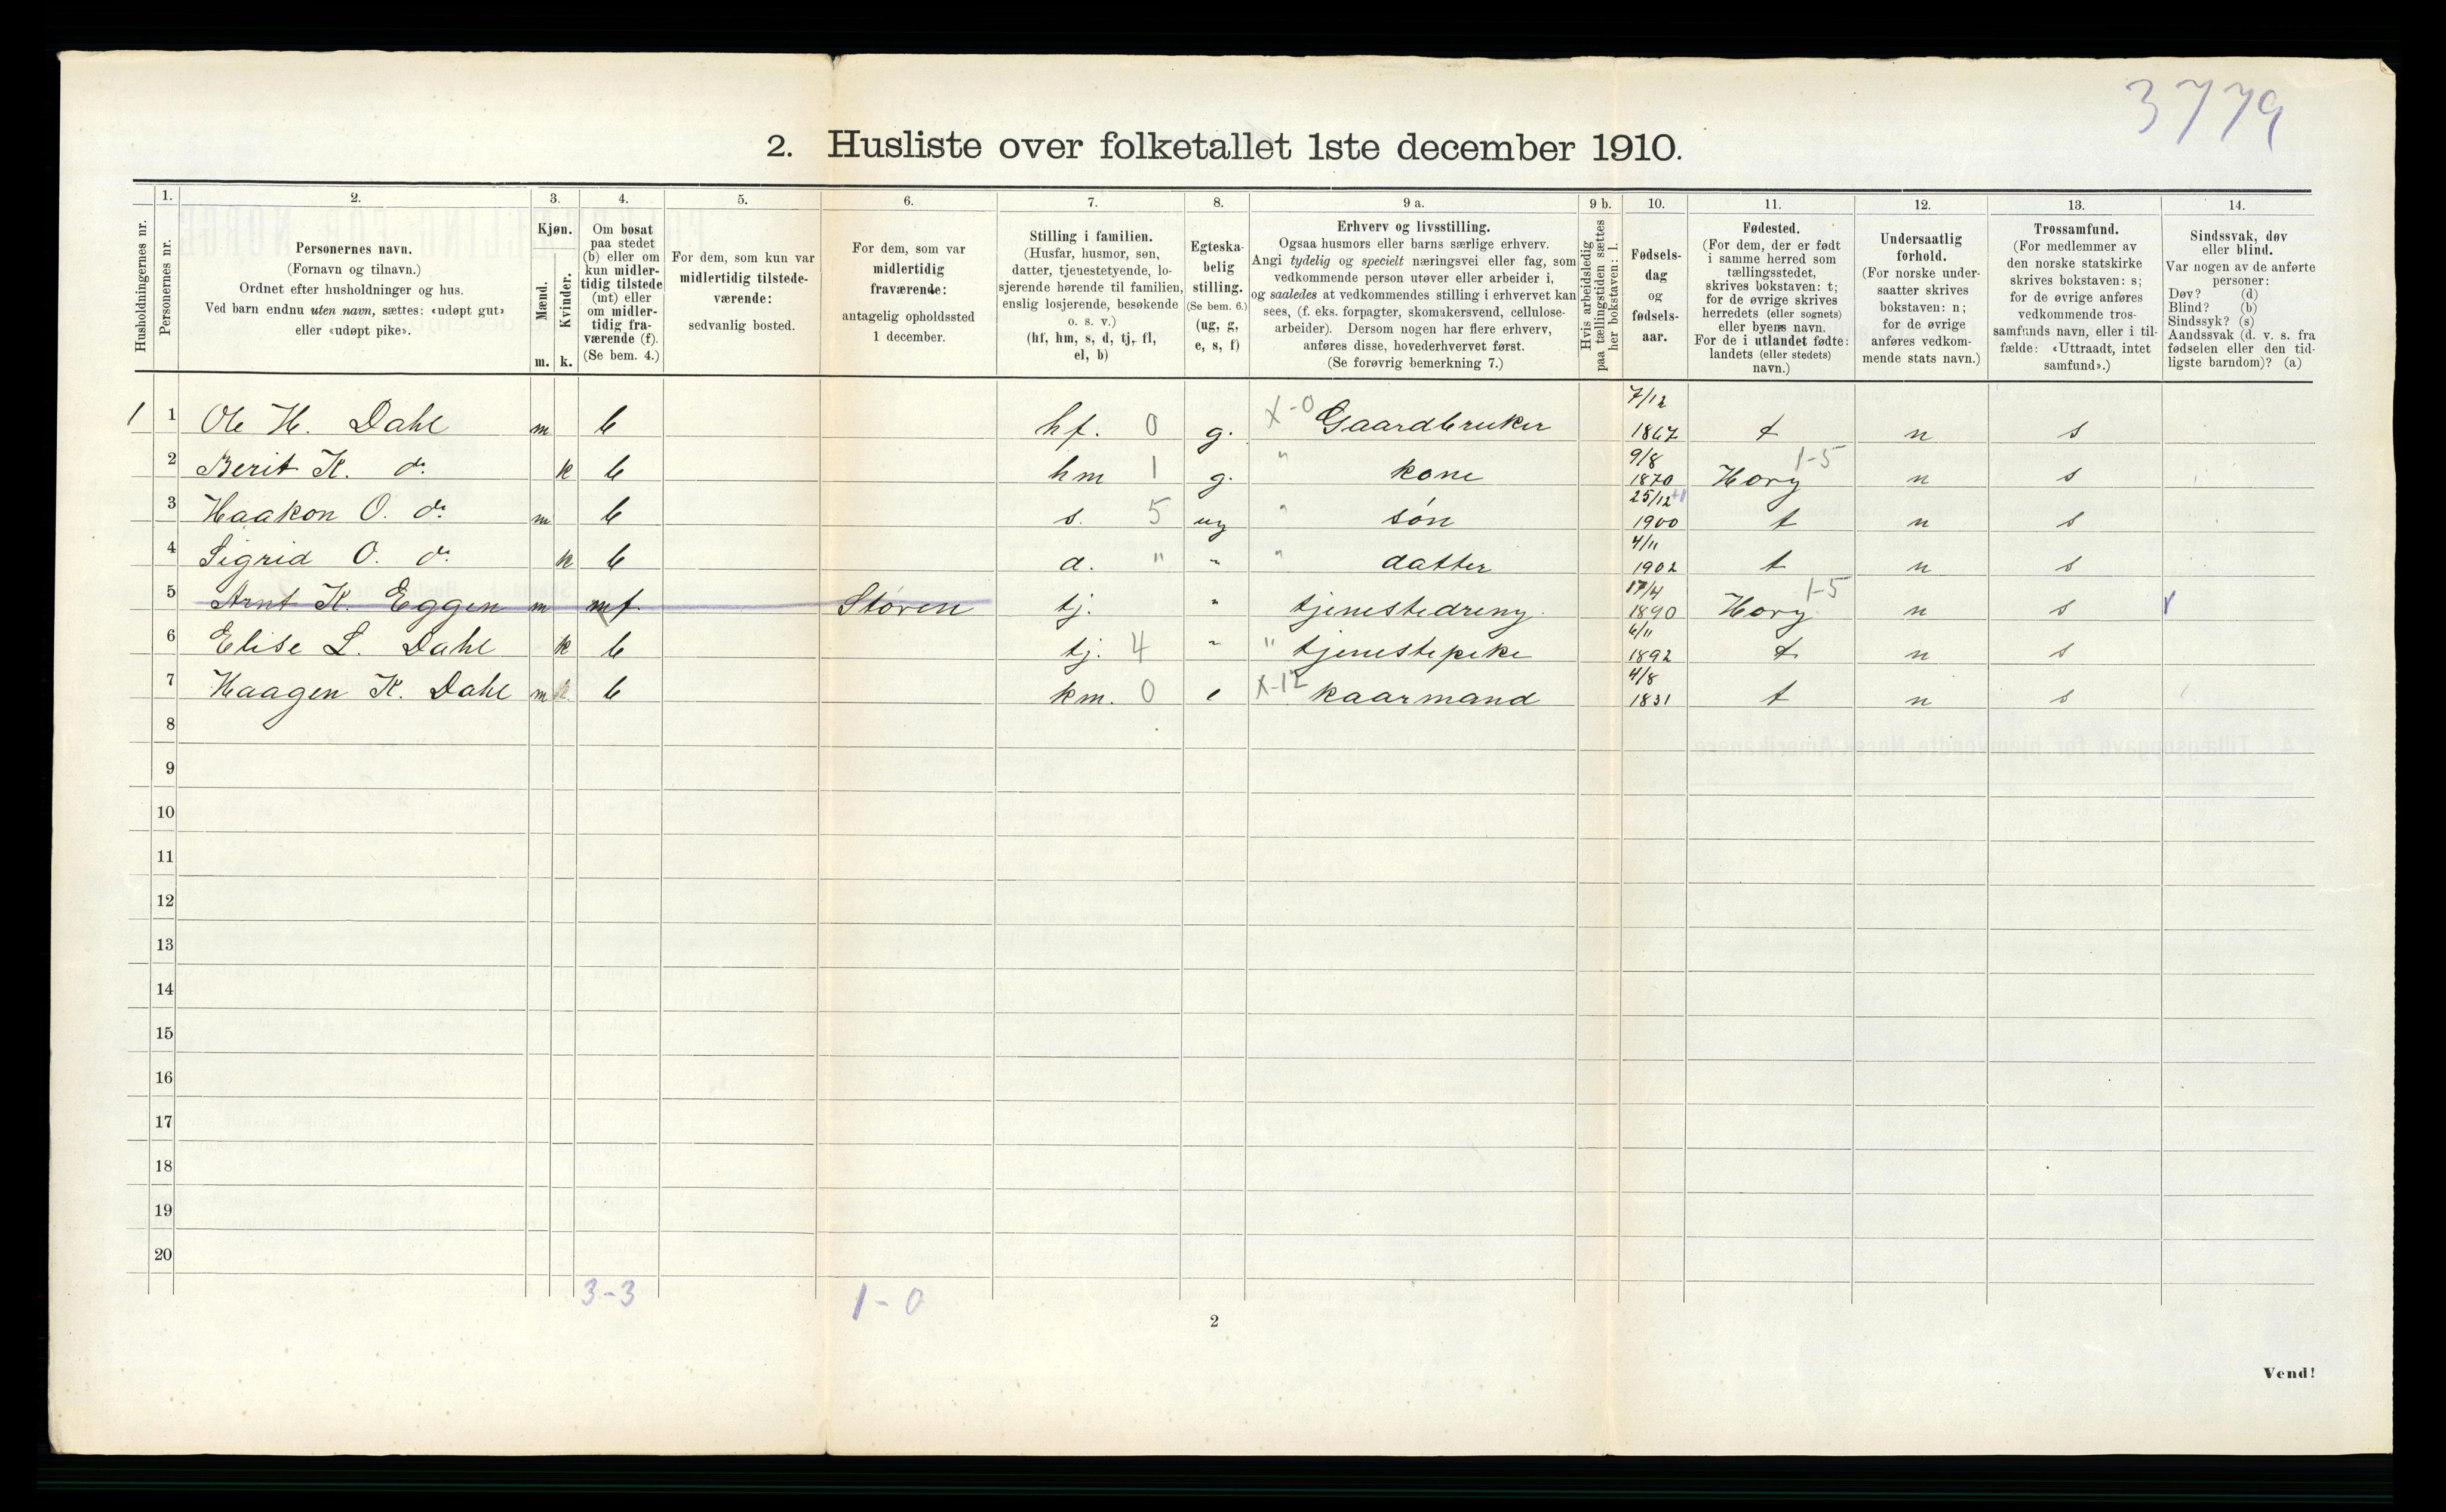 3779
2. Husliste over folketallet 1ste december 1910.
Husholdningernes nr.
1.
Personernes nr.
2.
Personernes navn.
(Fornavn og tilnavn.)
Ordnet efter husholdninger og hus.
Ved barn endnu uten navn, sættes: «udøpt gut»
eller «udøpt pike».
3.
Kjøn.
Mænd.
Kvinder.
m. k.
4.
Om bosat
paa stedet
(b) eller om
kun midler-
tidig tilstede
(mt) eller
om midler-
tidig fra-
værende (f).
(Se bem. 4.)
5.
For dem, som kun var
midlertidig tilstede-
værende:
sedvanlig bosted.
6.
For dem, som var
midlertidig
fraværende:
antagelig opholdssted
1 december.
7.
Stilling i familien.
(Husfar, husmor, søn,
datter, tjenestetyende, lo-
sjerende hørende til familien,
enslig losjerende, besøkende
o. s. v.)
(hf, hm, s, d, tj, fl,
el, b)
8.
Egteska-
belig
stilling.
(Se bem. 6.)
(ug, g,
e, s, f)
9 a.
Erhverv og livsstilling.
Ogsaa husmors eller barns særlige erhverv.
Angi tydelig og specielt næringsvei eller fag, som
vedkommende person utøver eller arbeider i,
og saaledes at vedkommendes stilling i erhvervet kan
sees, (f. eks. forpagter, skomakersvend, cellulose-
arbeider). Dersom nogen har flere erhverv,
anføres disse, hovederhvervet først.
(Se forøvrig bemerkning 7.)
9 b.
Hvis arbeidsledig
paa tællingstiden sættes
her bokstaven: l.
10.
Fødsels-
dag
og
fødsels-
aar.
11.
Fødested.
(For dem, der er født
i samme herred som
tællingsstedet,
skrives bokstaven: t;
for de øvrige skrives
herredets (eller sognets)
eller byens navn.
For de i utlandet fødte:
landets (eller stedets)
navn.)
12.
Undersaatlig
forhold.
(For norske under-
saatter skrives
bokstaven: n;
for de øvrige
anføres vedkom-
mende stats navn.)
13.
Trossamfund.
(For medlemmer av
den norske statskirke
skrives bokstaven: s;
for de øvrige anføres
vedkommende tros-
samfunds navn, eller i til-
fælde: «Uttraadt, intet
samfund».)
14.
Sindssvak, døv
eller blind.
Var nogen av de anførte
personer:
Døv? (d)
Blind? (b)
Sindssyk? (s)
Aandssvak (d. v. s. fra
fødselen eller den tid-
ligste barndom)? (a)
1 1 Ole H. Dahl m b hf. 0 g. X-0 Gaardbruker 7/12 1867 t n s
2 Berit K. do k b hm 1 g. " kone 9/8 1870 Horg 1-5 n s
3 Haakon O. do m b s. 5 ug " søn 25/12 +1 1900 t n s
4 Sigrid O. do k b d. " " " datter 4/11 1902 t n s
5 Arnt K. Eggen m mf Støren tj. " tjenestedreng. 17/4 1890 Horg 1-5 n s
6 Elise L. Dahl k b tj. 4 " " tjenestepike 6/11 1892 t n s
7 Haagen K. Dahl m k b km. 0 e X-12 kaarmand 4/8 1831 t n s
8
9
10
11
12
13
14
15
16
17
18
19
20
3-3 1-0
2
Vend!